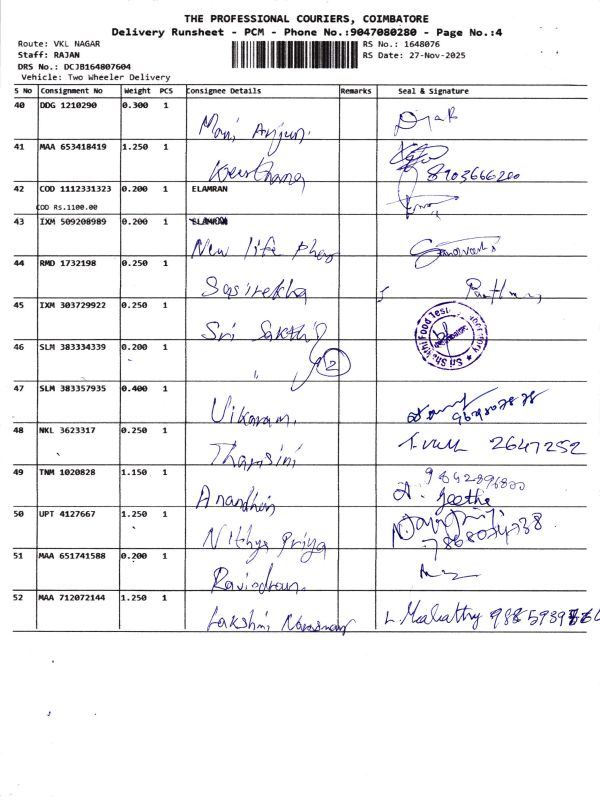 THE PROFESSIONAL COURIERS, COIMBATORE
Delivery Runsheet - PCM - Phone No.:9047080280 - Page No.:4
Route: VKL NAGAR
RS No.: 1648076
Staff: RAJAN
RS Date: 27-Nov-2025
DRS No.: DCJB164807604
Vehicle: Two Wheeler Delivery
S No Consignment No Weight PCS Consignee Details Remarks Seal & Signature
40 DDG 1210290 0.300 1
Mani Arjun.
41 MAA 653418419 1.250 1
Keerthana 8903666200
42 COD 1112331323 0.200 1 ELAMRAN
COD RS.1100.00
43 IXM 509208989 0.200 1
New life
44 RMD 1732198 0.250 1
Sasirekha
45 IXM 303729922 0.250 1
Sri Sakthi
46 SLM 383334339 0.200 1
" 2
47 SLM 383357935 0.400 1
Vikaram.
48 NKL 3623317 0.250 1
Tharsini 2647252
49 TNM 1020828 1.150 1
Anandhin Jeetha
50 UPT 4127667 1.250 1
Nithya Priya
51 MAA 651741588 0.200 1
52 MAA 712072144 1.250 1
Lakshmi